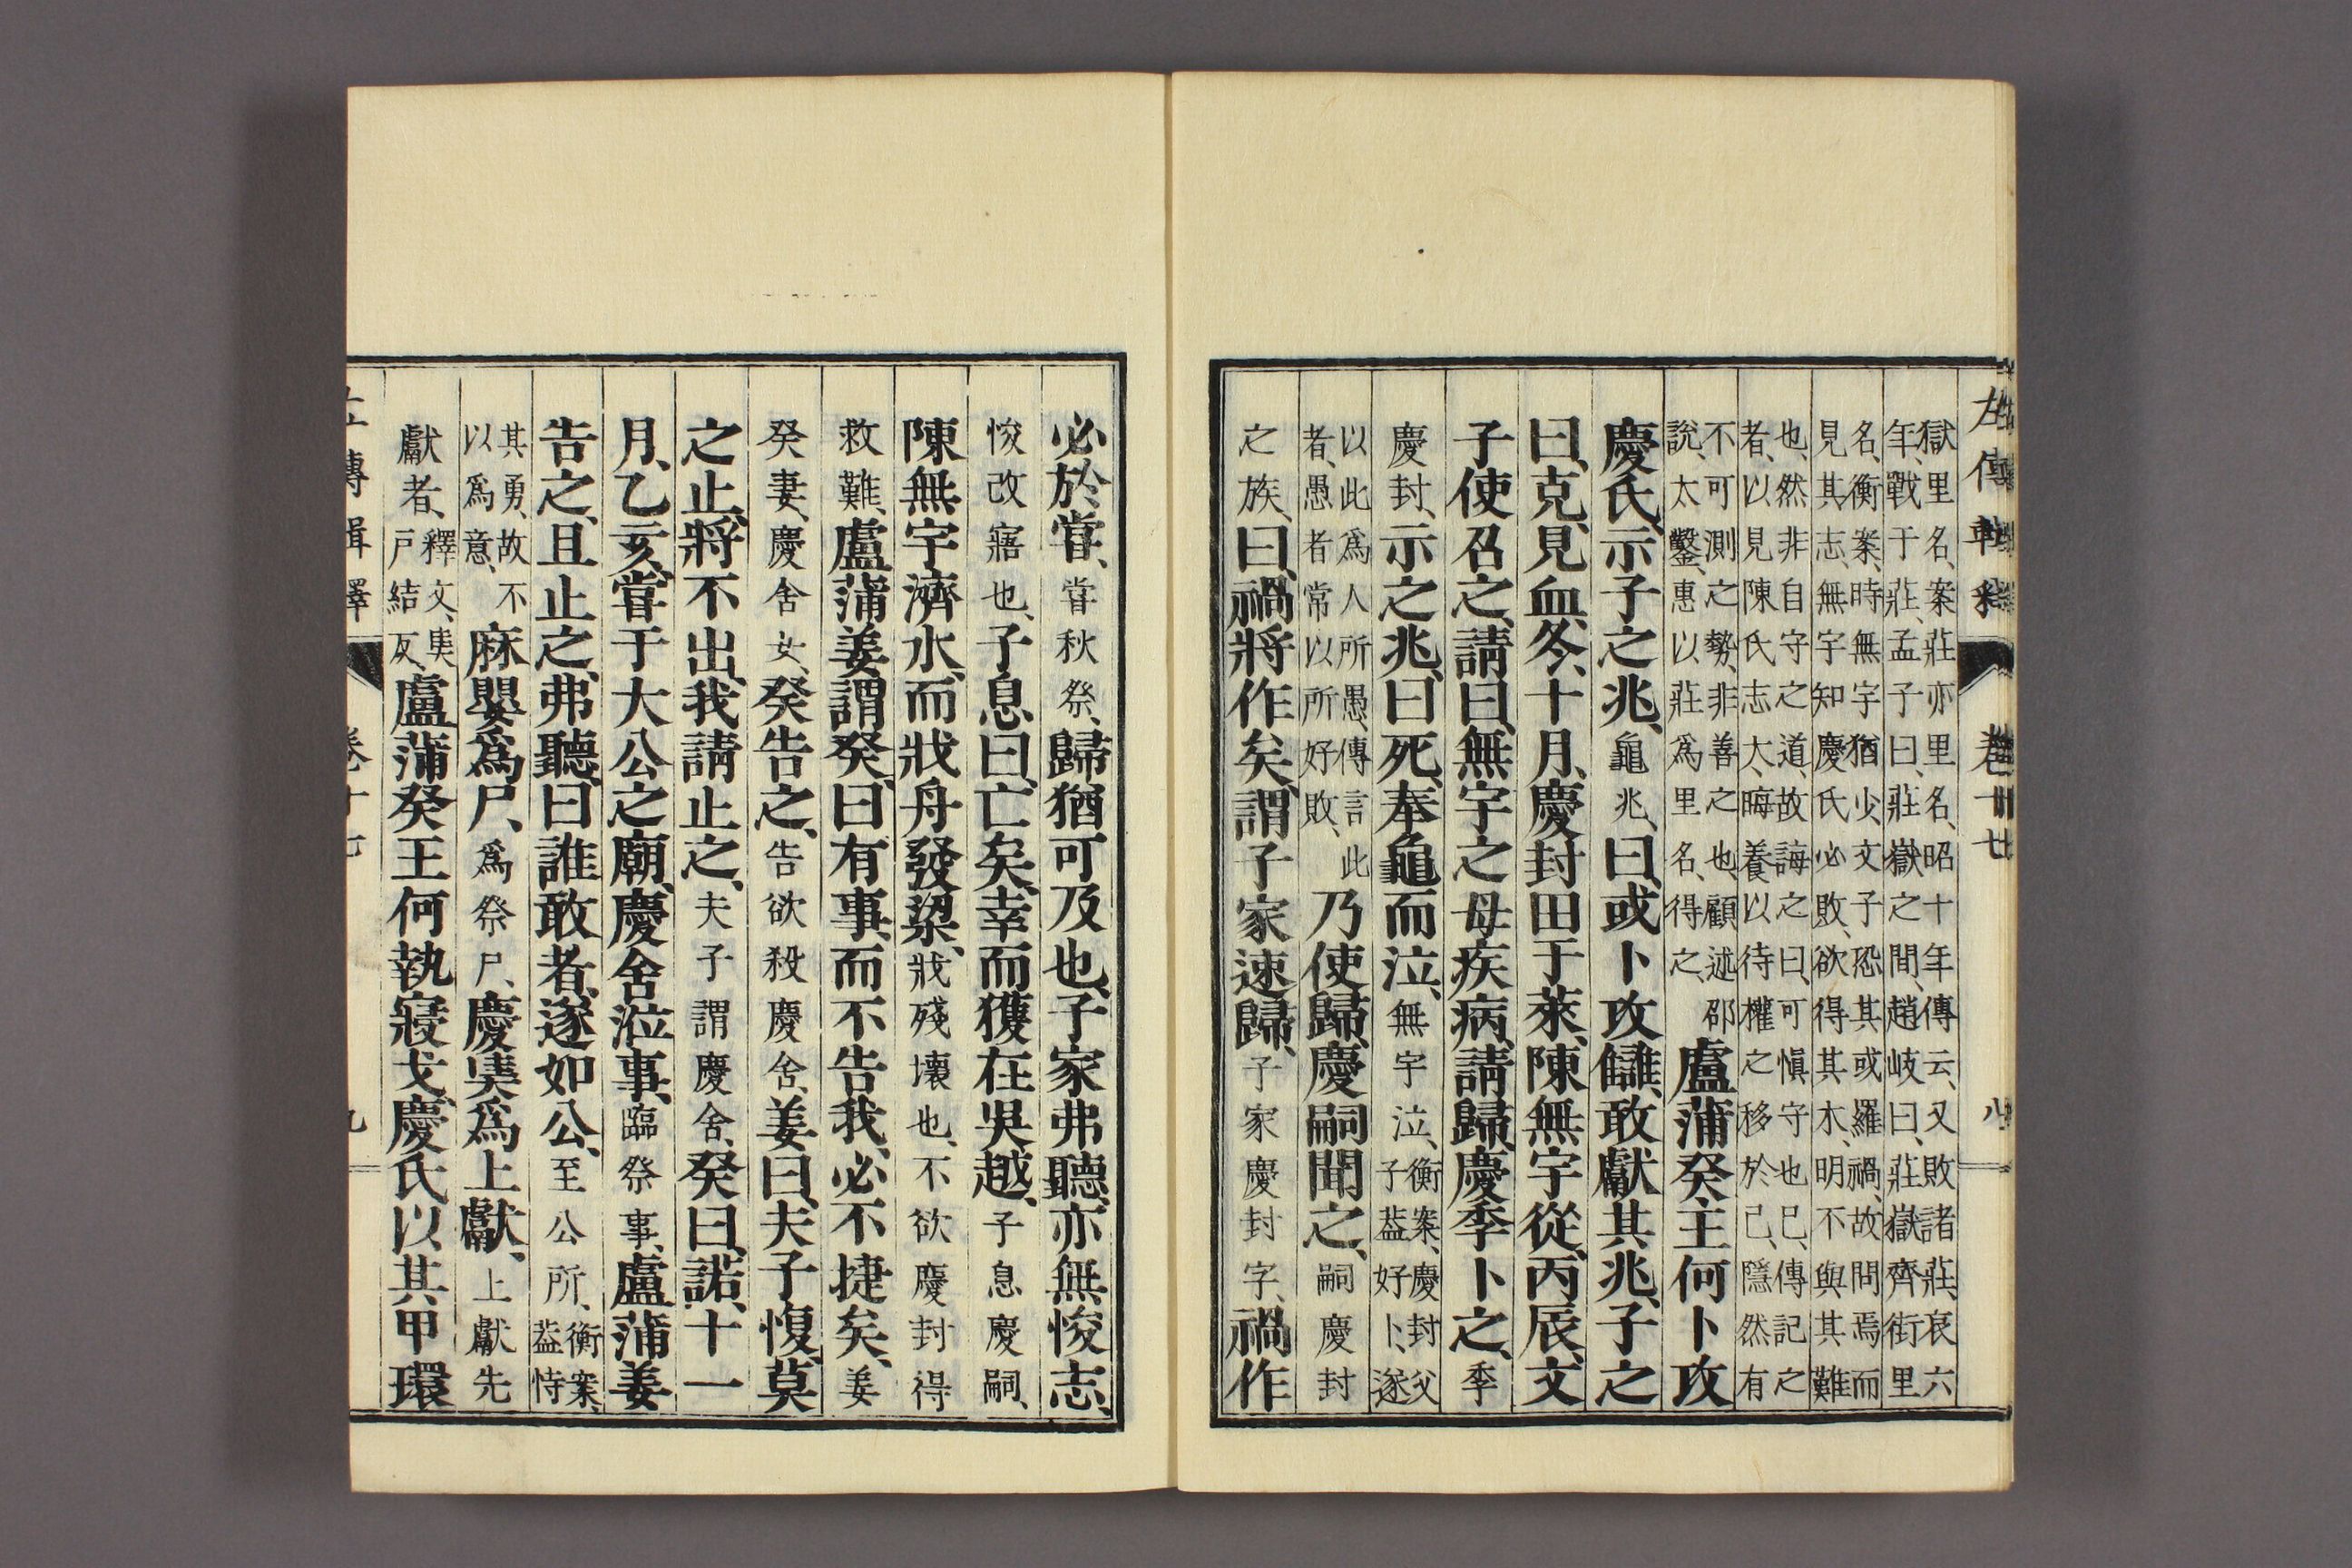 左傳輯釋　卷十七　八
獄里名、案莊亦里名、昭十年傳云、又敗諸莊、哀六
年、戰于莊、孟子曰、莊嶽之間、趙岐曰、莊嶽齊街里
名、衡案、時無宇猶少、文子恐其或羅禍、故問焉而
見其志、無宇知慶氏必敗、欲得其木、明不與其難
也、然非自守之道、故誨之曰、可愼守也已、傳記之
者、以見陳氏志大、晦養以待權之移於己、隱然有
不可測之勢、非善之也、顧述邵
說、太鑿、惠以莊爲里名、得之、
盧蒲癸王何卜攻
慶氏、示子之兆、龜兆、曰、或卜攻讎、敢獻其兆、子之
曰、克、見血、冬、十月、慶封田于萊、陳無宇從、丙辰、文
子使召之、請曰、無宇之母疾病、請歸、慶季卜之、季
慶封、示之兆、曰、死、奉龜而泣、無宇泣、衡案、慶封父
子葢好卜、遂
以此爲人所愚、傳言此
者、愚者常以所好敗、
乃使歸、慶嗣聞之、嗣慶封
之族、曰、禍將作矣、謂子家速歸、子家慶封字、禍作
必於嘗、嘗秋祭、歸猶可及也、子家弗聽、亦無悛志、
悛改寤也、子息曰、亡矣、幸而獲在吳越、子息慶嗣、
陳無宇濟水、而戕舟發梁、戕殘壞也、不欲慶封得
救難、盧蒲姜謂癸、曰有事、而不告我、必不捷矣、姜
癸妻、慶舍女、癸告之、告欲殺慶舍、姜曰、夫子愎、莫
之止、將不出、我請止之、夫子謂慶舍、癸曰、諾、十一
月、乙亥、嘗于大公之廟、慶舍涖事、臨祭事、盧蒲姜
告之、且止之、弗聽、曰誰敢者、遂如公、至公所、衡案、
葢恃
其勇、故不
以爲意、
麻嬰爲尸、爲祭尸、慶奊爲上獻、上獻先
獻者、釋文、奊
戸結反、
盧蒲癸王何執寢戈、慶氏以其甲環
左傳輯釋　卷十七　九